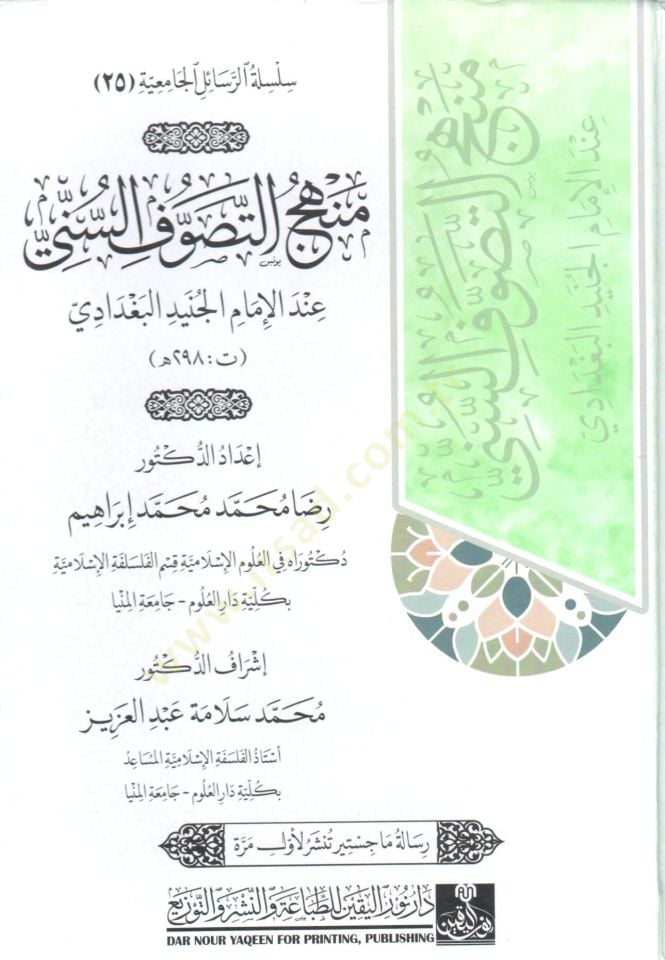 سِلْسِلَةُ الرَّسَائِلِ الجَامِعِيَّة (٢٥)
مَنْهَجُ التَّصَوُّفِ السُّنِّيِّ
يونس
عِنْدَ الإِمَامِ الجُنَيْدِ البَغْدَادِيِّ
(ت: ٢٩٨هـ)
إعْدَادُ الدُّكْتُور
رِضَا مُحَمَّد مُحَمَّد إِبْرَاهِيم
دُكْتُورَاه فِي العُلُومِ الإِسْلَامِيَّةِ قِسْمِ الفَلْسَلفَةِ الإِسْلَامِيَّةِ
بِكُلِّيَّةِ دَارِ العُلُومِ - جَامِعَةِ المِنْيَا
إِشْرَافُ الدُّكْتُور
مُحَمَّد سَلَامَة عَبْدِ العَزِيز
أُسْتَاذُ الفَلْسَفَةِ الإِسْلَامِيَّةِ المُسَاعِدُ
بِكُلِّيَّةِ دَارِ العُلُومِ - جَامِعَةِ المِنْيَا
رِسَالَةُ مَاجِسْتِير تُنْشَرُ لِأَوَّلِ مَرَّة
دار نور اليقين للطباعة والنشر والتوزيع
DAR NOUR YAQEEN FOR PRINTING, PUBLISHING
نور اليقين
مَنْهَجُ التَّصَوُّفِ السُّنِّيِّ
يونس
عِنْدَ الإِمَامِ الجُنَيْدِ البَغْدَادِيِّ